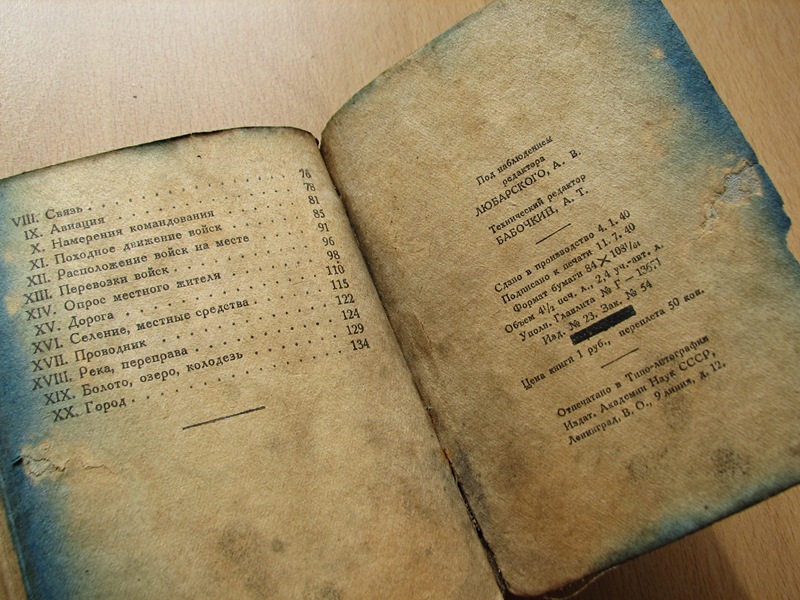 VIII. Связь . . . . . . . . . . 76
IX. Авиация . . . . . . . . . . 78
X. Намерения командования . . . . . 81
XI. Походное движение войск . . . . . 85
XII. Расположение войск на месте . . . . 91
XIII. Перевозки войск . . . . . . . . 96
XIV. Опрос местного жителя . . . . . . 98
XV. Дорога . . . . . . . . . . 110
XVI. Селение, местные средства . . . . . 115
XVII. Проводник . . . . . . . . . 122
XVIII. Река, переправа . . . . . . . . 124
XIX. Болото, озеро, колодезь . . . . . . 129
XX. Город . . . . . . . . . . 134
Под наблюдением
редактора
ЛЮБАРСКОГО, А. В.
Технический редактор
БАБОЧКИН, А. Т.
Сдано в производство 4. 1. 40
Подписано к печати 11. 7. 40
Формат бумаги 84×108¹/₆₄
Объем 4¹/₂ печ. л., 2,4 уч.-авт. л.
Упол. Главлита № Г—
Изд. № 23. Зак. № 54
Цена книги 1 руб., переплета 50 коп.
Отпечатано в Типо-литографии
Издат. Академии Наук СССР,
Ленинград, В. О., 9 линия, д. 12.